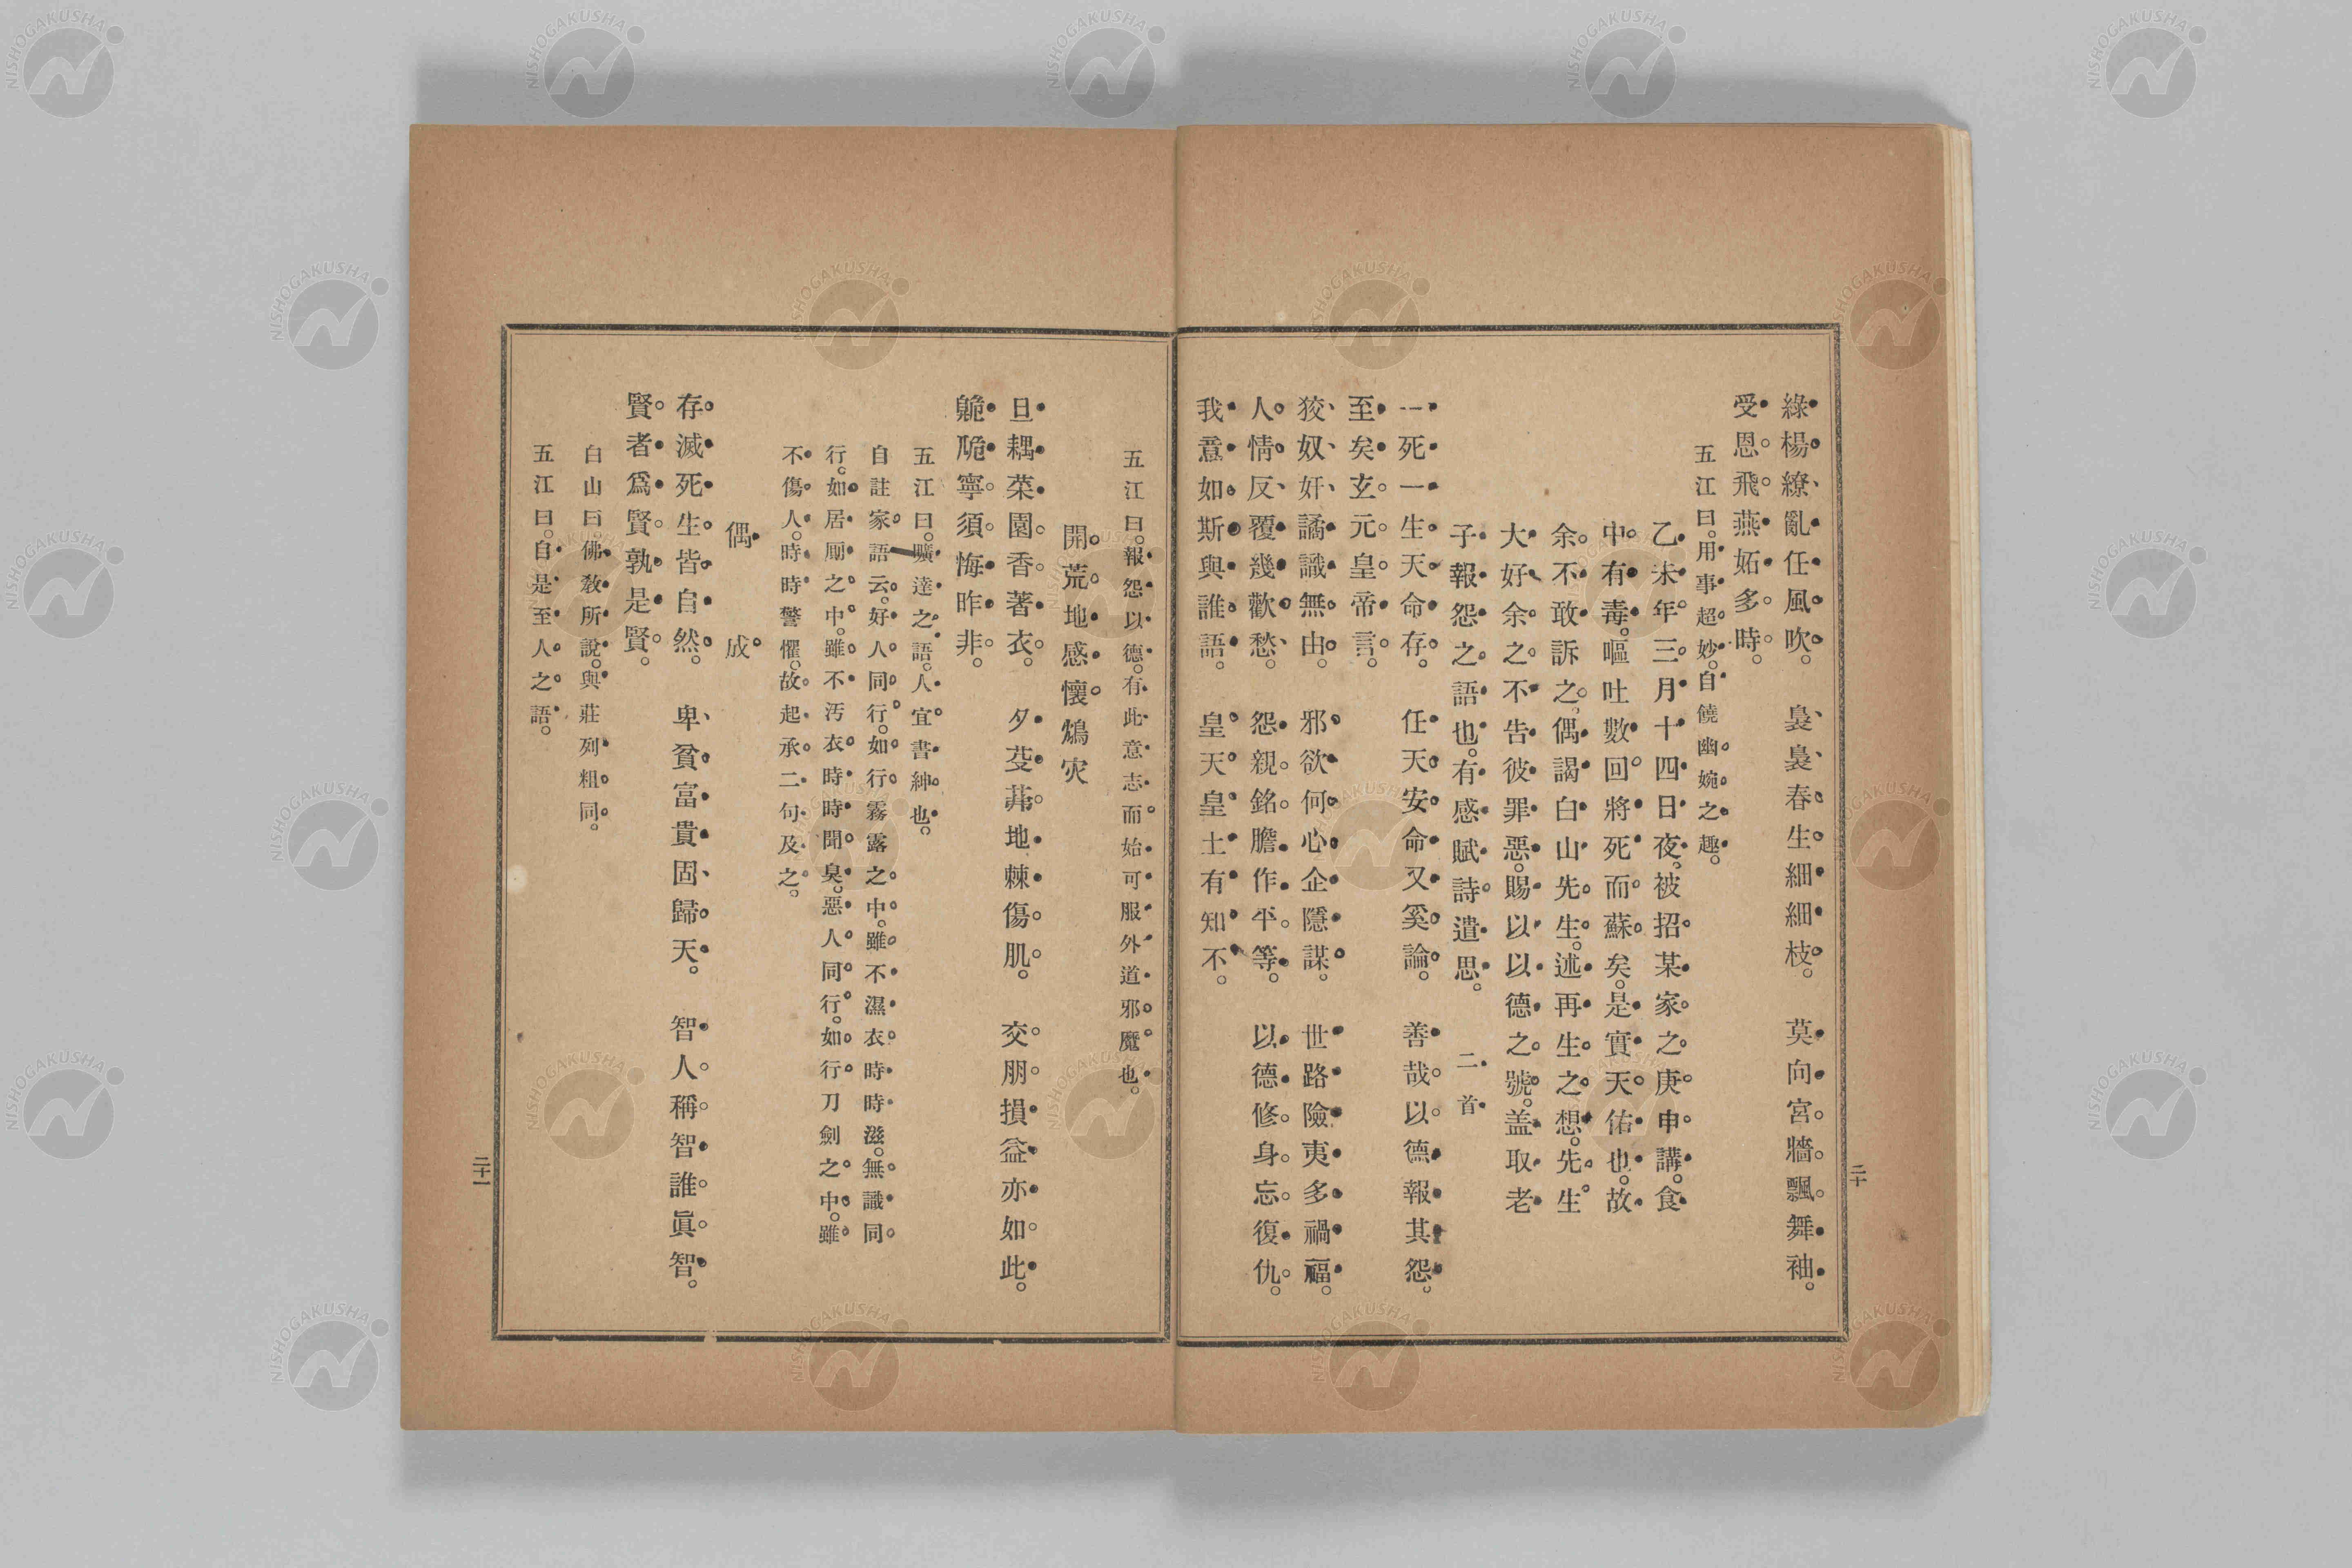 綠楊繚亂任風吹。裊裊春生細細枝。莫向宮牆飄舞袖。
受恩飛燕妬多時。
五江曰。用事超妙。自饒幽婉之趣。
乙未年三月十四日夜。被招某家之庚申講。食
中有毒。嘔吐數回將死而蘇矣。是實天佑也。故
余不敢訴之。偶謁白山先生。述再生之想。先生
大好余之不告彼罪惡。賜以以德之號。盖取老
子報怨之語也。有感賦詩遣思。 二首
一死一生天命存。任天安命又奚論。善哉以德報其怨。
至矣玄元皇帝言。
狡奴奸譎識無由。邪欲何心企隱謀。世路險夷多禍福。
人情反覆幾歡愁。怨親銘膽作平等。以德修身忘復仇。
我意如斯與誰語。皇天皇土有知不。
二十
五江曰。報怨以德。有此意志而始可服外道邪魔也。
開荒地感懷鴆灾
旦耦菜園香著衣。夕芟茀地棘傷肌。交朋損益亦如此。
臲脆寧須悔昨非。
五江曰。曠達之語。人宜書紳也。
自註家語云。好人同行。如行霧露之中。雖不濕衣時時滋。無識同
行。如居厠之中。雖不汚衣時時聞臭。惡人同行。如行刀劍之中。雖
不傷人。時時警懼。故起承二句及之。
偶成
存滅死生皆自然。卑貧富貴固歸天。智人稱智誰眞智。
賢者爲賢孰是賢。
白山曰。佛敎所說。與莊列粗同。
五江曰。自是至人之語。
二十一
NISHOGAKUSHA